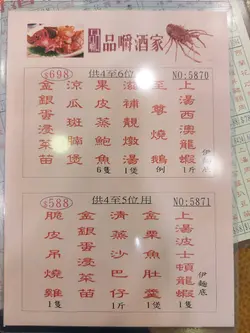 品嚼酒家
$698
供4至6位用
NO:5870
上湯西澳龍蝦 1斤 伊麵底
至尊燒鵝 1例
滋補靚燉湯
果皮蒸鮑魚 6隻
涼瓜斑腩煲
金銀蛋浸菜苗
$588
供4至5位用
NO:5871
上湯波士頓龍蝦 1隻 伊麵底
金粟魚肚羹
清蒸沙巴仔 1斤
金銀蛋浸菜苗
脆皮吊燒雞 1隻